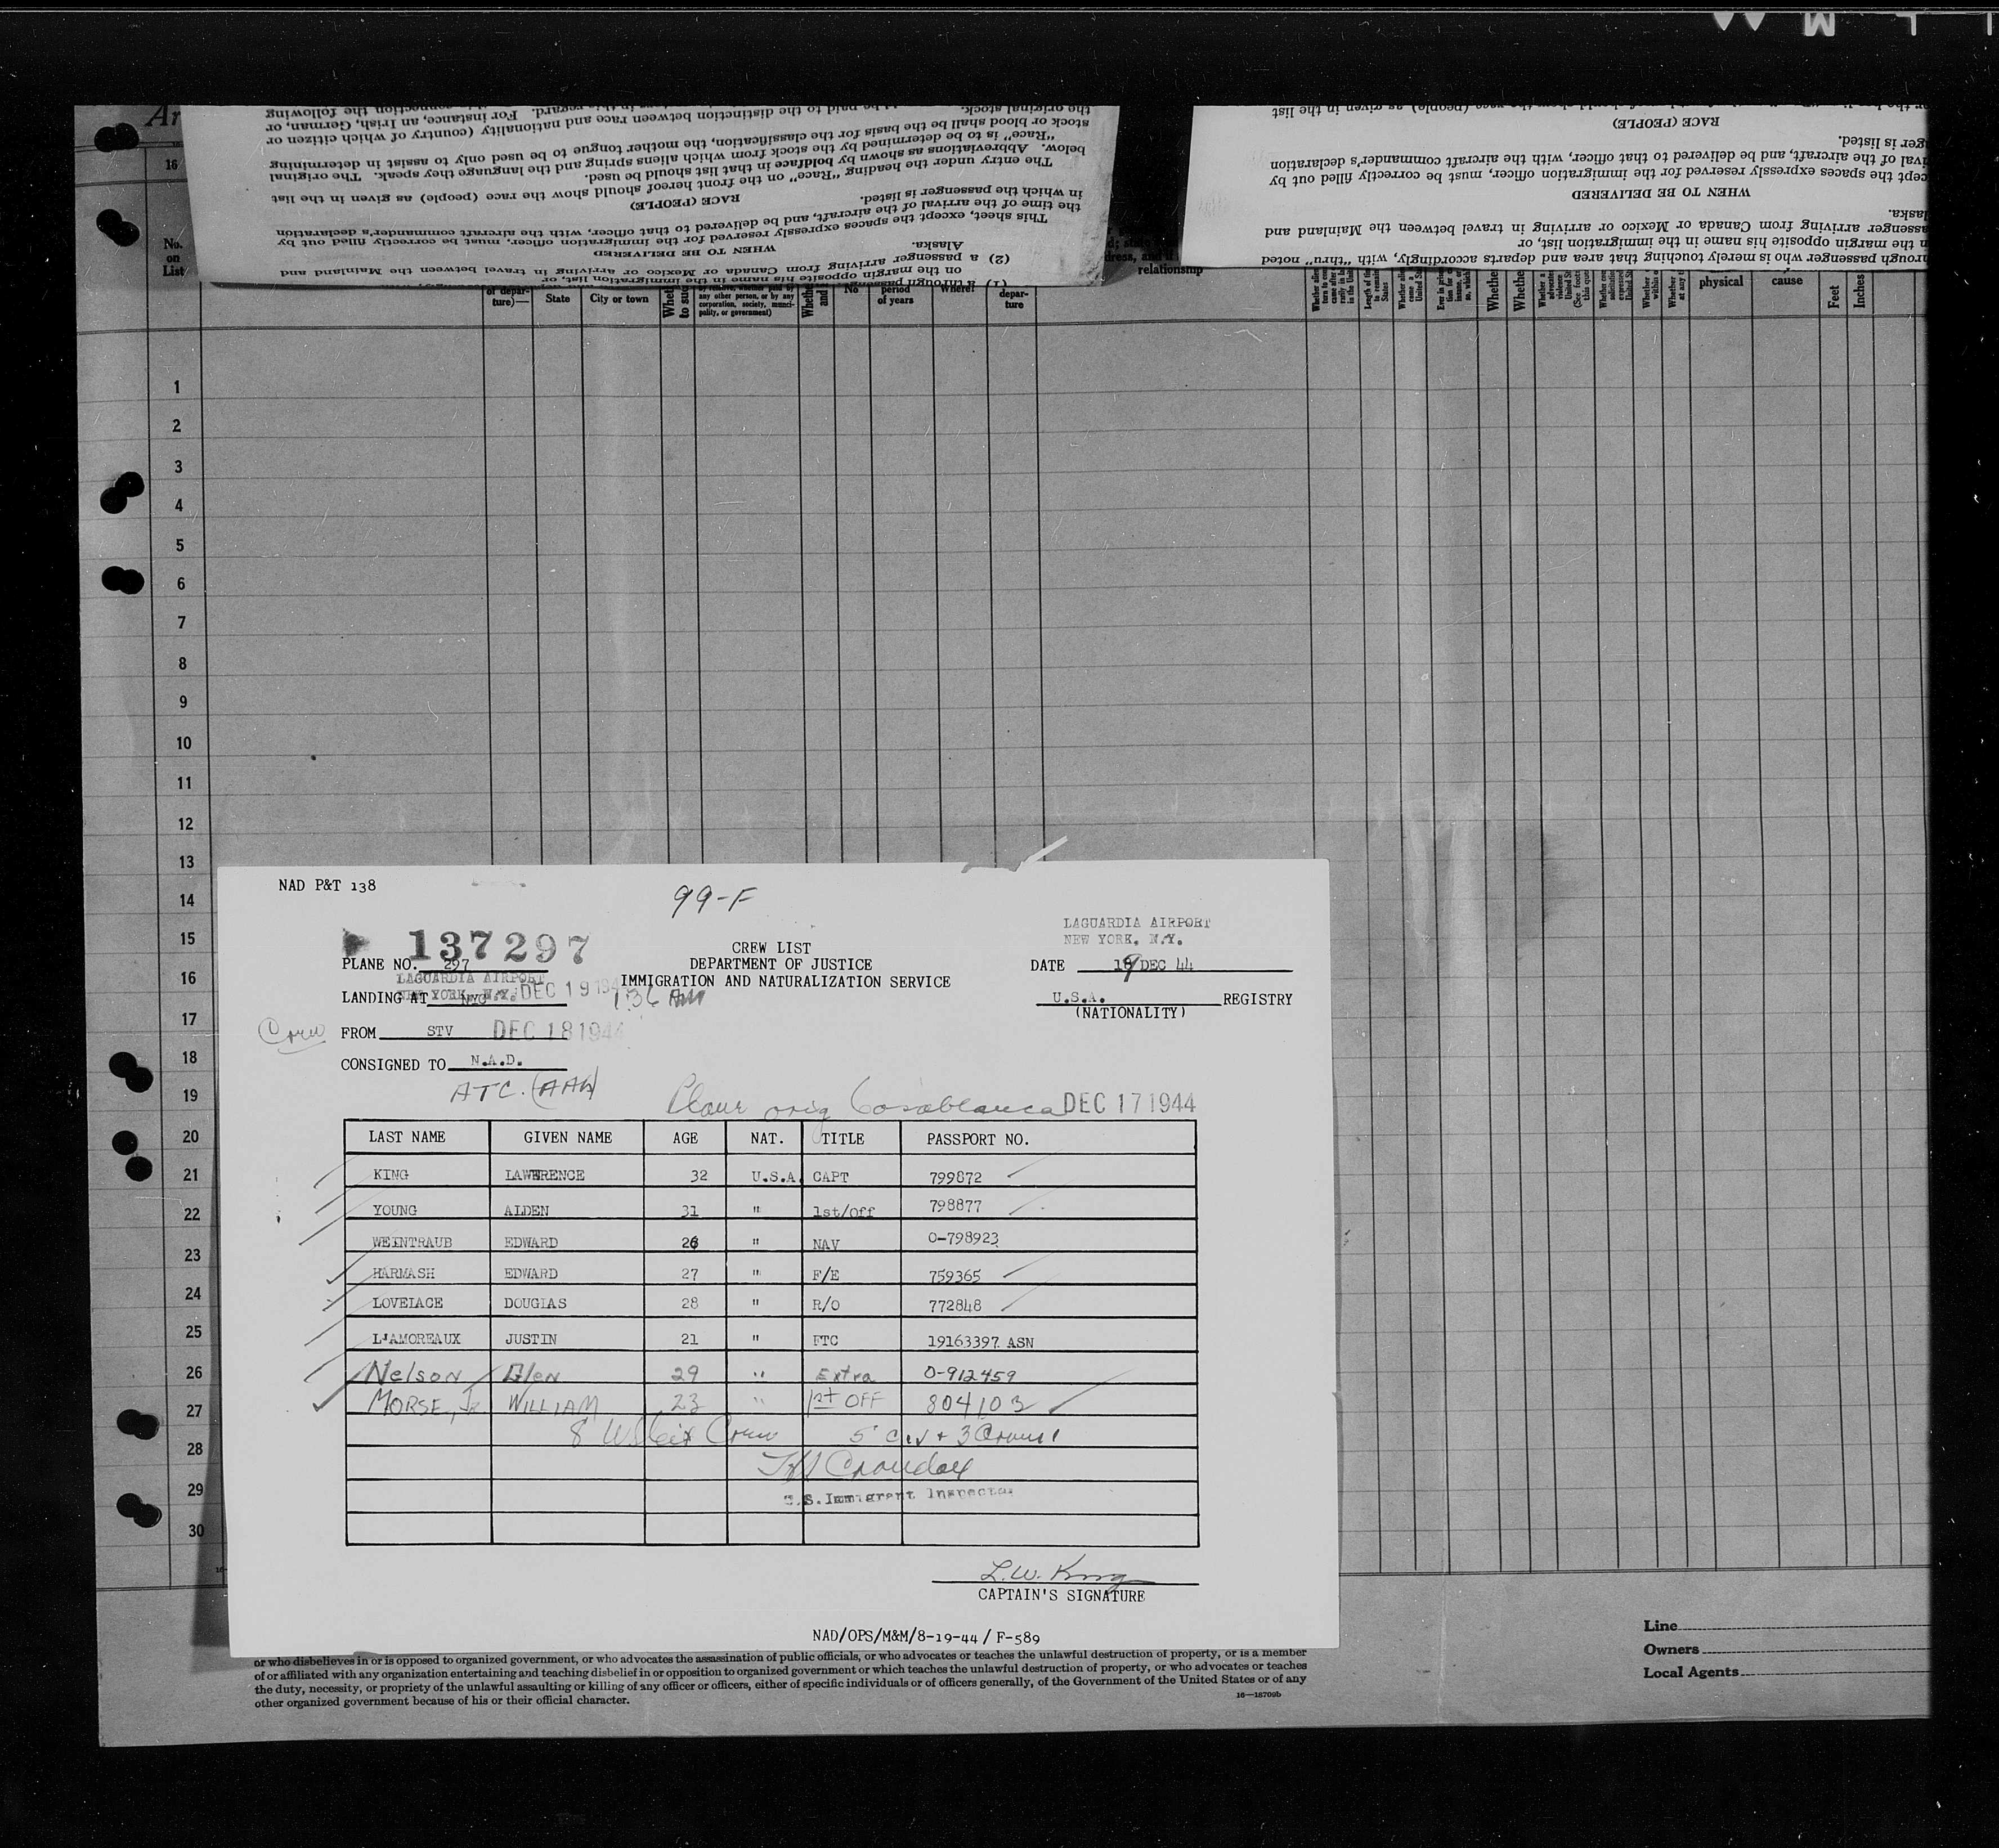 the original stock.
stock or blood shall be the basis for the classification, the mother tongue to be used only to assist in determining
"Race" is to be determined by the stock from which aliens spring and the language they speak. The original
below. Abbreviations as shown by boldface in that list should be used.
The entry under the heading "Race" on the front hereof should show the race (people) as given in the list
RACE (PEOPLE)
in which the passenger is listed.
the time of the arrival of the aircraft, and be delivered to that officer, with the aircraft commander's declaration
This sheet, except the spaces expressly reserved for the immigration officer, must be correctly filled out by
WHEN TO BE DELIVERED
Alaska.
(2) a passenger arriving from Canada or Mexico or arriving in travel between the Mainland and
on the margin opposite his name in the immigration list, or
RACE (PEOPLE)
WHEN TO BE DELIVERED
16
No.
on
List
State
City or town
any other person, or by any
corporation, society, munici-
pality, or government)
No
period
of years
Where?
depar-
ture
relationship
physical
cause
Feet
Inches
1
2
3
4
5
6
7
8
9
10
11
12
13
14
15
16
17
18
19
20
21
22
23
24
25
26
27
28
29
30
NAD P&T 138
99-F
LAGUARDIA AIRPORT
NEW YORK, N.Y.
137297
CREW LIST
PLANE NO. 297
DEPARTMENT OF JUSTICE
DATE 19 DEC 44
LAGUARDIA AIRPORT
IMMIGRATION AND NATURALIZATION SERVICE
NEW YORK, N.Y. DEC 19 194
LANDING AT NYC
1:36 AM
U.S.A. REGISTRY
(NATIONALITY)
Crew
FROM STV DEC 18 1944
CONSIGNED TO N.A.D.
ATC.
Plane orig Casablanca DEC 17 1944
LAST NAME GIVEN NAME AGE NAT. TITLE PASSPORT NO.
KING LAWRENCE 32 U.S.A. CAPT 799872
YOUNG ALDEN 31 " 1st/Off 798877
WEINTRAUB EDWARD 26 " NAV O-798923
HARMASH EDWARD 27 " F/E 759365
LOVELACE DOUGLAS 28 " R/O 772848
L'AMOREAUX JUSTIN 21 " FTC 19163397 ASN
Nelson Glen 29 " Extra O-912459
MORSE, Jr WILLIAM 23 " 1st OFF 804103
8 Crew 5 Civ + 3
U.S. Immigrant Inspector
L.W. King
CAPTAIN'S SIGNATURE
NAD/OPS/M&M/8-19-44 / F-589
or who disbelieves in or is opposed to organized government, or who advocates the assassination of public officials, or who advocates or teaches the unlawful destruction of property, or is a member
of or affiliated with any organization entertaining and teaching disbelief in or opposition to organized government or which teaches the unlawful destruction of property, or who advocates or teaches
the duty, necessity, or propriety of the unlawful assaulting or killing of any officer or officers, either of specific individuals or of officers generally, of the Government of the United States or of any
other organized government because of his or their official character.
16—18709b
Line
Owners
Local Agents